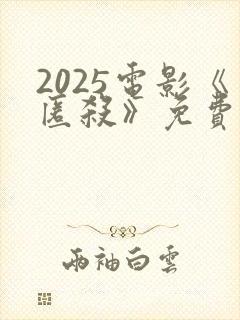 2025電影《
匿殺》免費
兩袖白雲